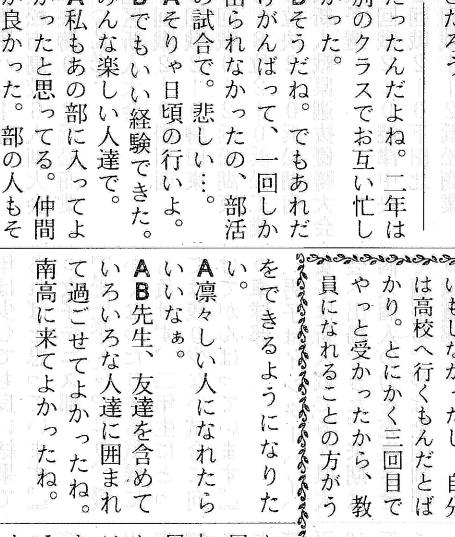 とだろう
たったんだよね。二年は
別のクラスでお互い忙し
かった。
Bそうだね。でもあれだ
けがんばって、一回しか
出られなかったの、部活
の試合で。悲しい…。
Aそりゃ日頃の行いよ。
Bでもいい経験できた。
みんな楽しい人達で。
A私もあの部に入ってよ
かったと思ってる。仲間
が良かった。部の人もそ
いもしなかったし　自分
は高校へ行くもんだとば
かり。とにかく三回目で
やっと受かったから、教
員になれることの方がう
をできるようになりた
い。
A凛々しい人になれたら
いいなぁ。
AB先生、友達を含めて
いろいろな人達に囲まれ
て過ごせてよかったね。
南高に来てよかったね。